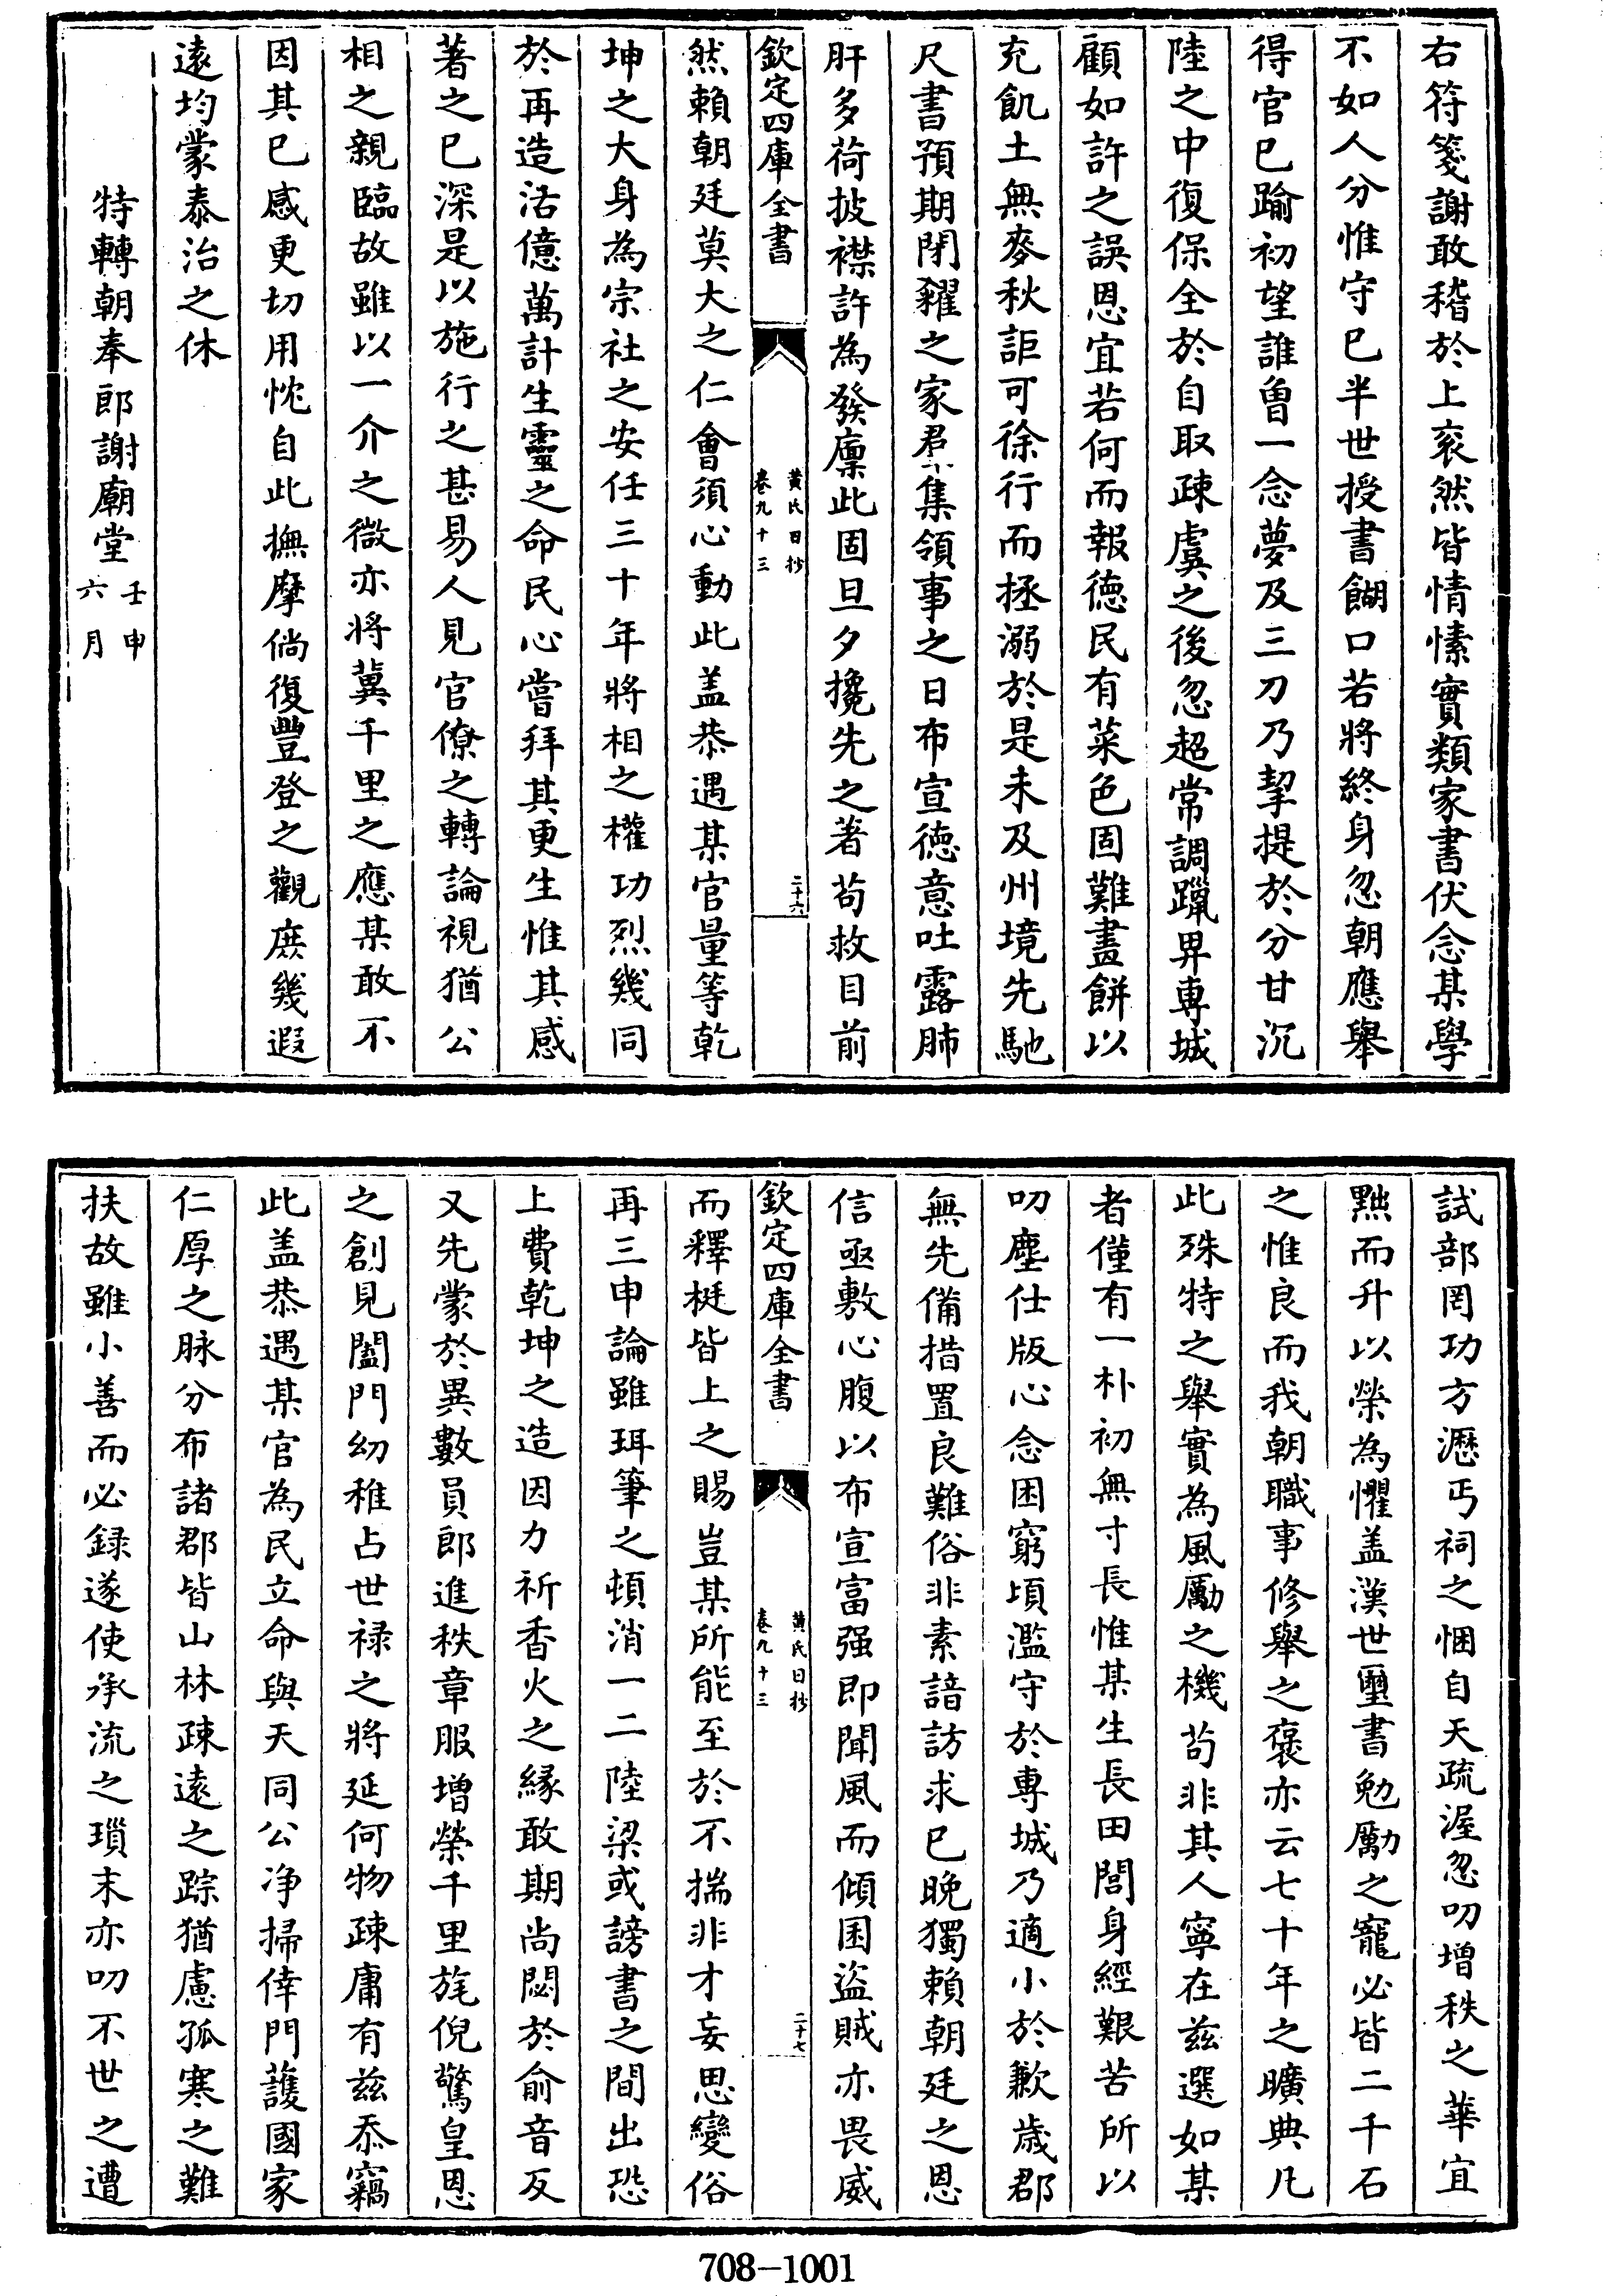 右符箋謝敢稽於上衮然皆情愫實類家書伏念某學
不如人分惟守已半世授書餬口若將終身忽朝應舉
得官已踰初望誰曽一念夢及三刀乃挈提於分甘沉
陸之中復保全於自取疎虞之後忽超常調躐畀專城
顧如許之誤恩宜若何而報德民有菜色固難畫餅以
充飢土無麥秋詎可徐行而拯溺於是未及州境先馳
尺書預期閉糴之家羣集領事之日布宣德意吐露肺
肝多荷披襟許為發廩此固旦夕攙先之著苟救目前
欽定四庫全書
黄氏日抄
卷九十三
二十六
然賴朝廷莫大之仁會須心動此盖恭遇某官量等乾
坤之大身為宗社之安任三十年將相之權功烈幾同
於再造活億萬計生靈之命民心嘗拜其更生惟其感
著之已深是以施行之甚易人見官僚之轉論視猶公
相之親臨故雖以一介之微亦將冀千里之應某敢不
因其已感更切用忱自此撫摩倘復豐登之觀庶幾遐
遠均蒙泰治之休
特轉朝奉郎謝廟堂
壬申
六月
試部罔功方瀝丐祠之悃自天疏渥忽叨增秩之華宜
黜而升以榮為懼盖漢世璽書勉勵之寵必皆二千石
之惟良而我朝職事修舉之褒亦云七十年之曠典凡
此殊特之舉實為風勵之機苟非其人寧在兹選如某
者僅有一朴初無寸長惟某生長田閭身經艱苦所以
叨塵仕版心念困窮頃濫守於專城乃適小於歉歲郡
無先備措置良難俗非素諳訪求已晚獨賴朝廷之恩
信亟敷心腹以布宣富强即聞風而傾囷盜賊亦畏威
欽定四庫全書
黄氏日抄
卷九十三
二十七
而釋梃皆上之賜豈某所能至於不揣非才妄思變俗
再三申論雖珥筆之頓消一二陸梁或謗書之間出恐
上費乾坤之造因力祈香火之緣敢期尚閟於俞音反
又先蒙於異數員郎進秩章服增榮千里旄倪驚皇恩
之創見闔門幼稚占世禄之將延何物疎庸有兹忝竊
此盖恭遇某官為民立命與天同公净掃倖門護國家
仁厚之脉分布諸郡皆山林疎遠之踪猶慮孤寒之難
扶故雖小善而必録遂使承流之瑣末亦叨不世之遭
708-1001